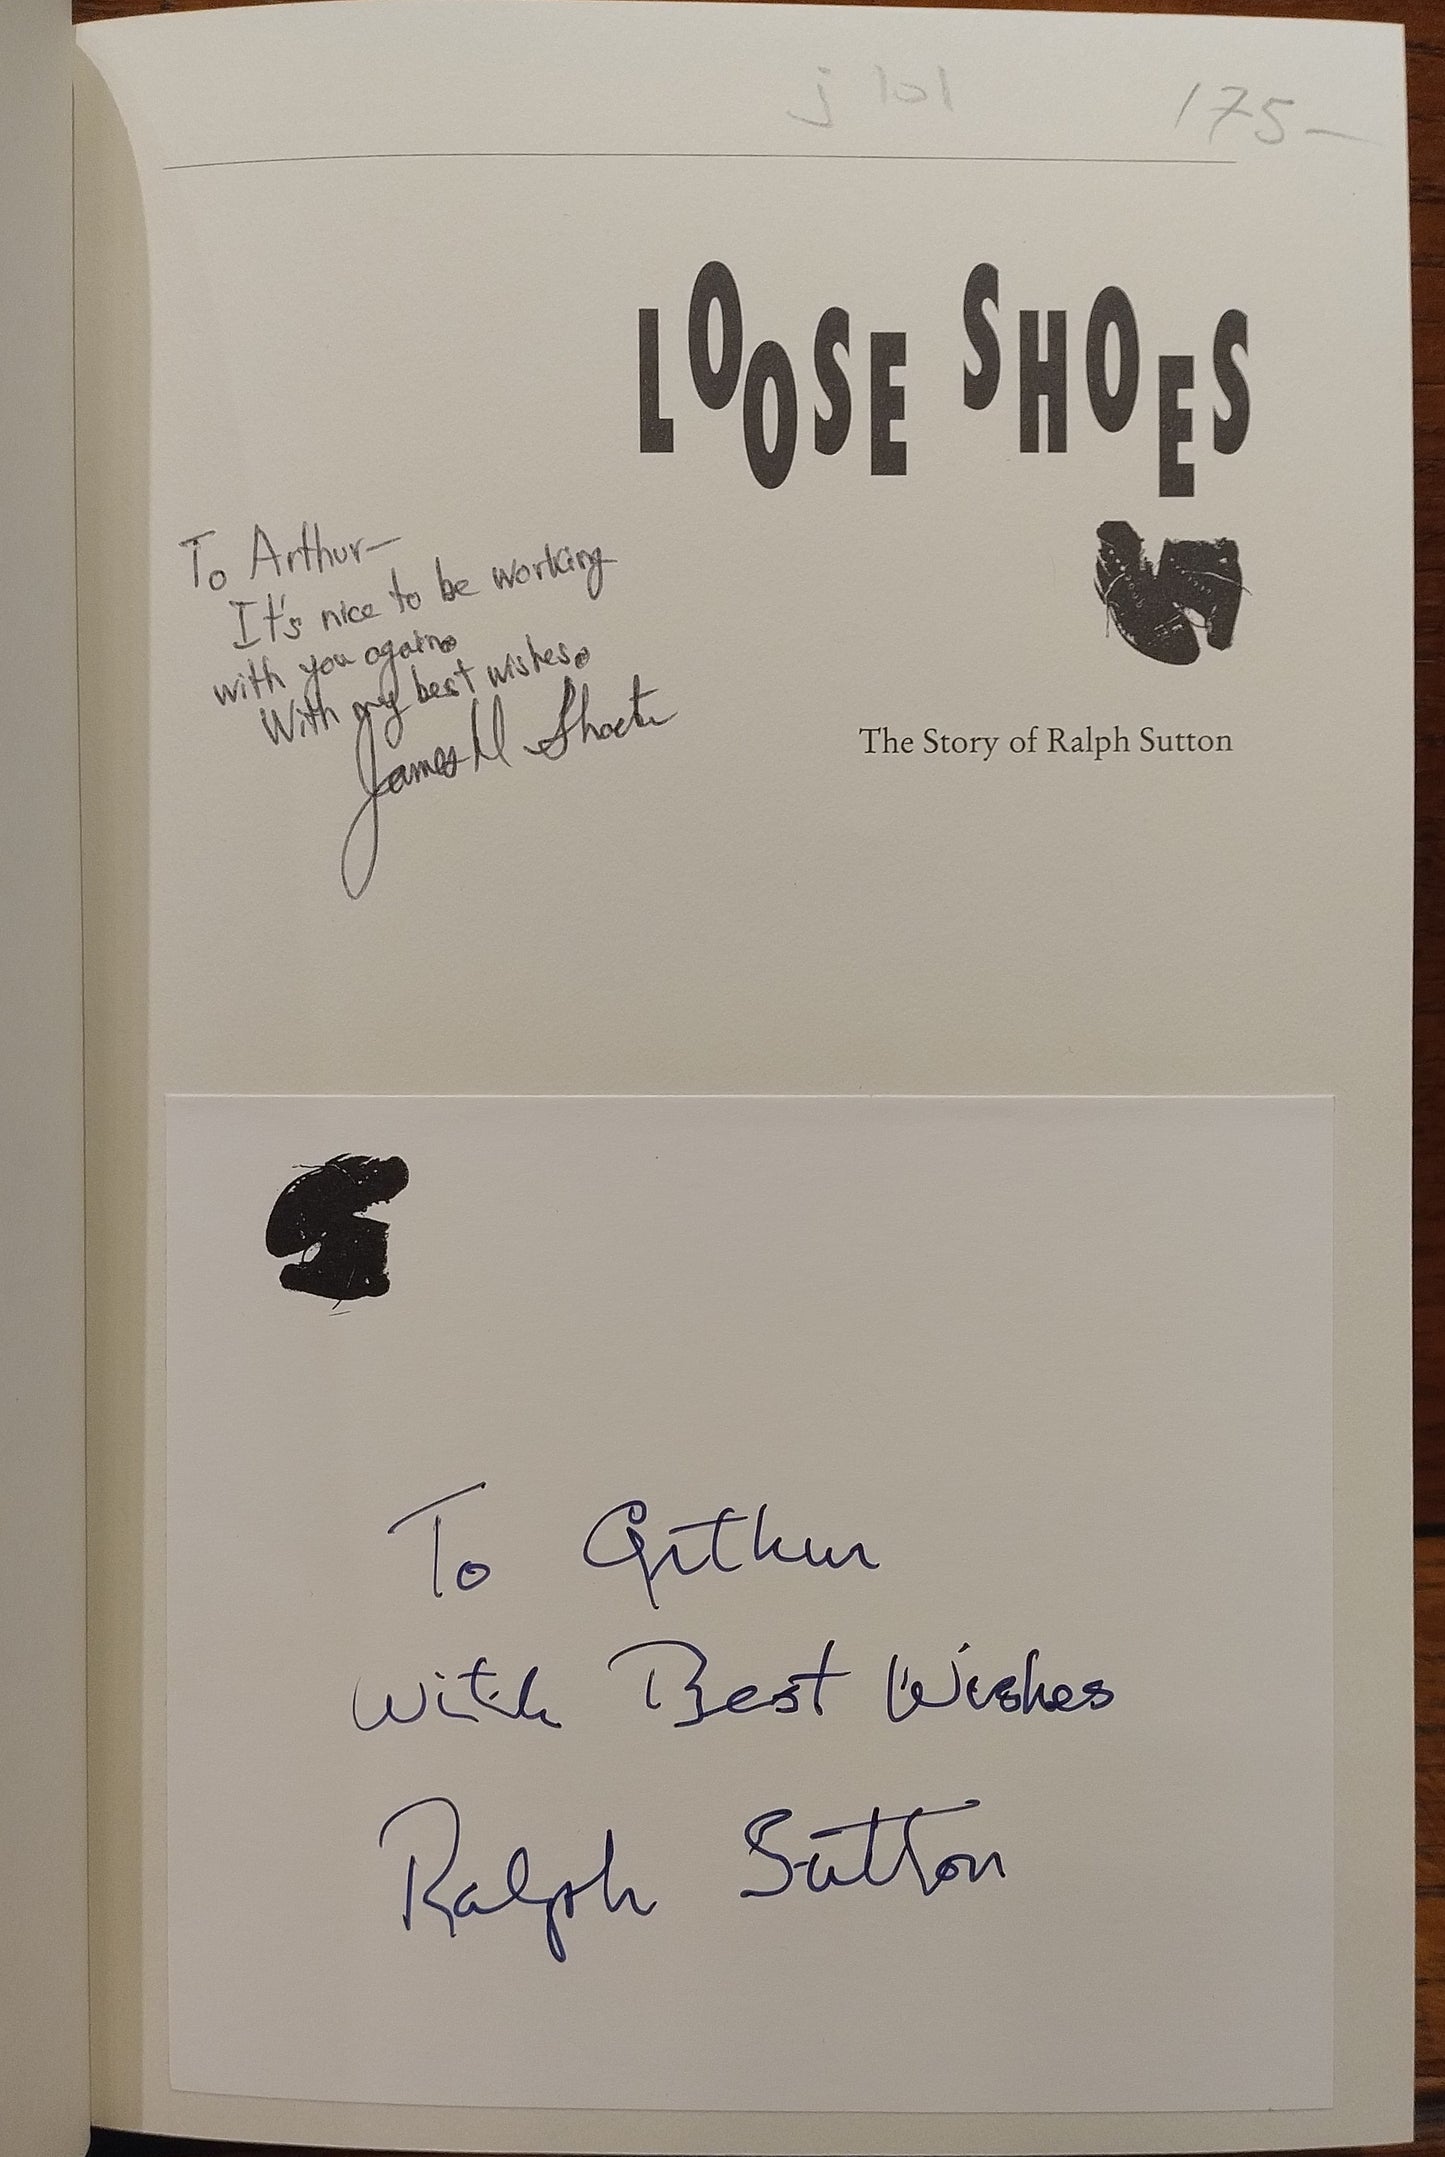 j 101
175—
LOOSE SHOES
To Arthur—
It's nice to be working
with you again.
With my best wishes.
James D Shacter
The Story of Ralph Sutton
To Arthur
With Best Wishes
Ralph Sutton